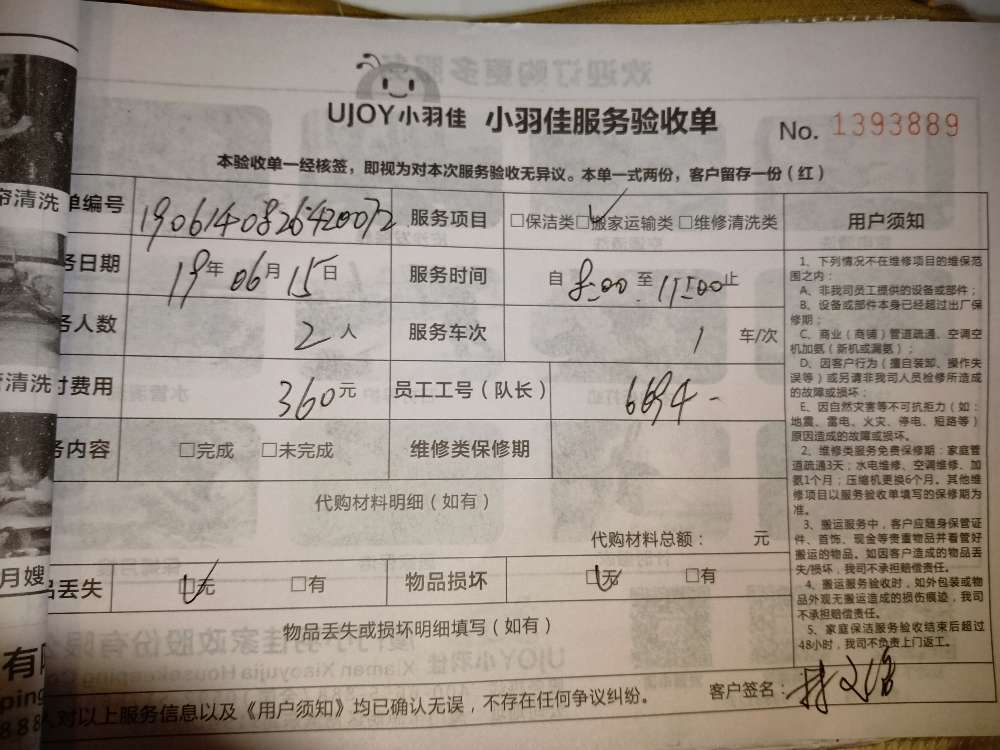 UJOY小羽佳 小羽佳服务验收单 No. 1393889
本验收单一经核签，即视为对本次服务验收无异议。本单一式两份，客户留存一份（红）
单编号 1906140826420072 服务项目 □保洁类□搬家运输类 □维修清洗类
务日期 19年06月15日 服务时间 自 8:00 至 11:00止
务人数 2人 服务车次 1 车/次
付费用 360元 员工工号（队长） 6694
务内容 □完成 □未完成 维修类保修期
代购材料明细（如有）
代购材料总额： 元
品丢失 □无 □有 物品损坏 □无 □有
物品丢失或损坏明细填写（如有）
人对以上服务信息以及《用户须知》均已确认无误，不存在任何争议纠纷。
客户签名：
用户须知
1、下列情况不在维修项目的维保范
围之内：
A、非我司员工提供的设备或部件；
B、设备或部件本身已经超过出厂保
修期；
C、商业（商铺）管道疏通、空调空
机加氨（新机或漏氨）；
D、因客户行为（擅自装卸、操作失
误等）或另请非我司人员检修所造成
的故障或损坏；
E、因自然灾害等不可抗拒力（如：
地震、雷电、火灾、停电、短路等）
原因造成的故障或损坏。
2、维修类服务免费保修期：家庭管
道疏通3天；水电维修、空调维修、加
氨1个月；压缩机更换6个月。其他维
修项目以服务验收单填写的保修期为
准。
3、搬运服务中，客户应随身保管证
件、首饰、现金等贵重物品并看管好
搬运的物品。如因客户造成的物品丢
失/损坏，我司不承担赔偿责任。
4、搬运服务验收时，如外包装或物
品外观无搬运造成的损伤痕迹，我司
不承担赔偿责任。
5、家庭保洁服务验收结束后超过
48小时，我司不负责上门返工。
帘清洗
清洗
月嫂
有
ping
888